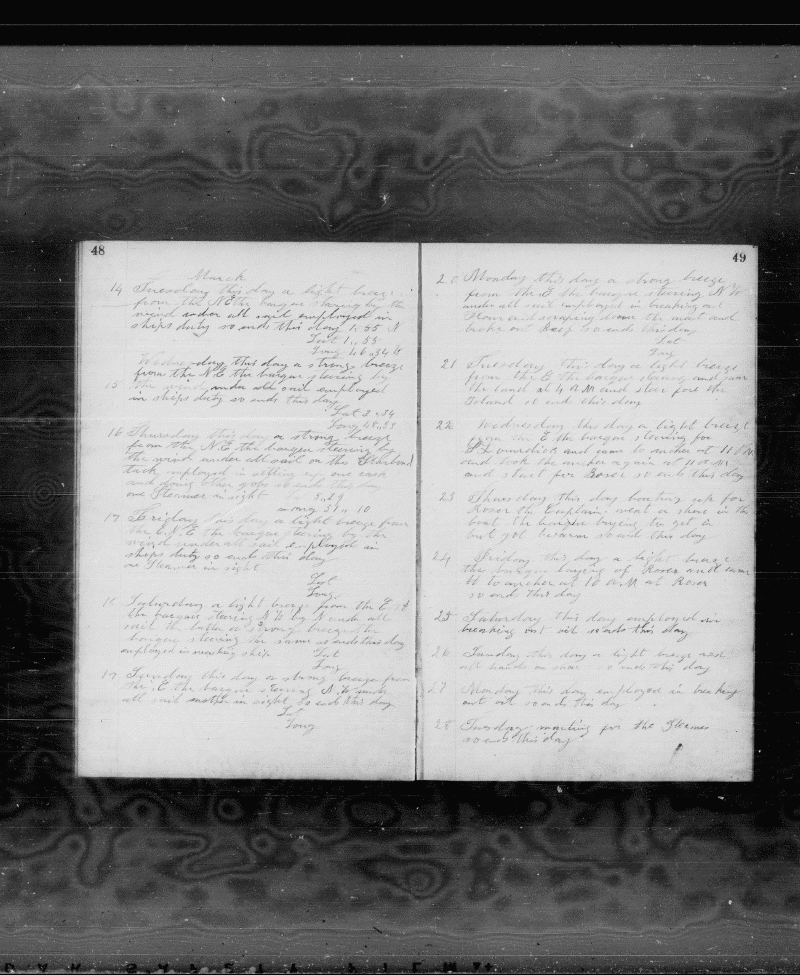 48
March
14 Tuesday this day a light breeze
from the N.E. the barque steering by the
wind under all sail employed in
ships duty so ends this day 1,, 55 N
Lat 1,, 55
Long 46,,34 W
Wednesday this day a strong breeze
from the N.E. the barque steering by
15 the wind under all sail employed
in ships duty so ends this day
Lat 2,,34
Long 48,,53
16 Thursday this day a strong breeze
from the N.E. the barque steering by
the wind under all sail on the Starbord
tack employed in setting up one cask
and doing other jobs so ends this day
one Steamer in sight 3,,29
Long 51,,10
17 Friday this day a light breeze from
the E.N.E. the barque steering by the
wind under all sail employed in
ships duty so ends this day
one Steamer in sight
Lat
Long
18 Saturday a light breeze from the E
the barque steering N.W. by N under all
sail the latter a strong breeze the
barque steering the same so ends this day
employed in ship
Lat
Long
19 Sunday this day a strong breeze from
the E the barque steering N.W. under
all sail in sight so ends this day
Lat
Long
49
20 Monday this day a strong breeze
from the E the barque steering N W
under all sail employed in breaking out
Flour and scraping down the mast and
broke out Beef so ends this day
Lat
Long
21 Tuesday this day a light breeze
from the E the barque steering and saw
the land at 4 A M and stood fore the
Island so ends this day
22 Wednesday this day a light breeze
from the E the barque steering for
and came to anchor at 11
and took the anchor again at 11 A.M.
and for Rosor so ends this day
23 Thursday this day beating up for
Rosor the Captain went a shore in the
boat the barque trying to get in
but got so end this day
24 Friday this day a light breeze
the barque laying of Rosor and came
to anchor at 10 A.M at Rosor
so end this day
25 Saturday this day employed in
breaking out oil so ends this day
26 Sunday this day a light breeze and
all hands on shore so ends this day
27 Monday this day employed in breaking
out oil so ends this day
28 Tuesday waiting for the Steamer
so ends this day